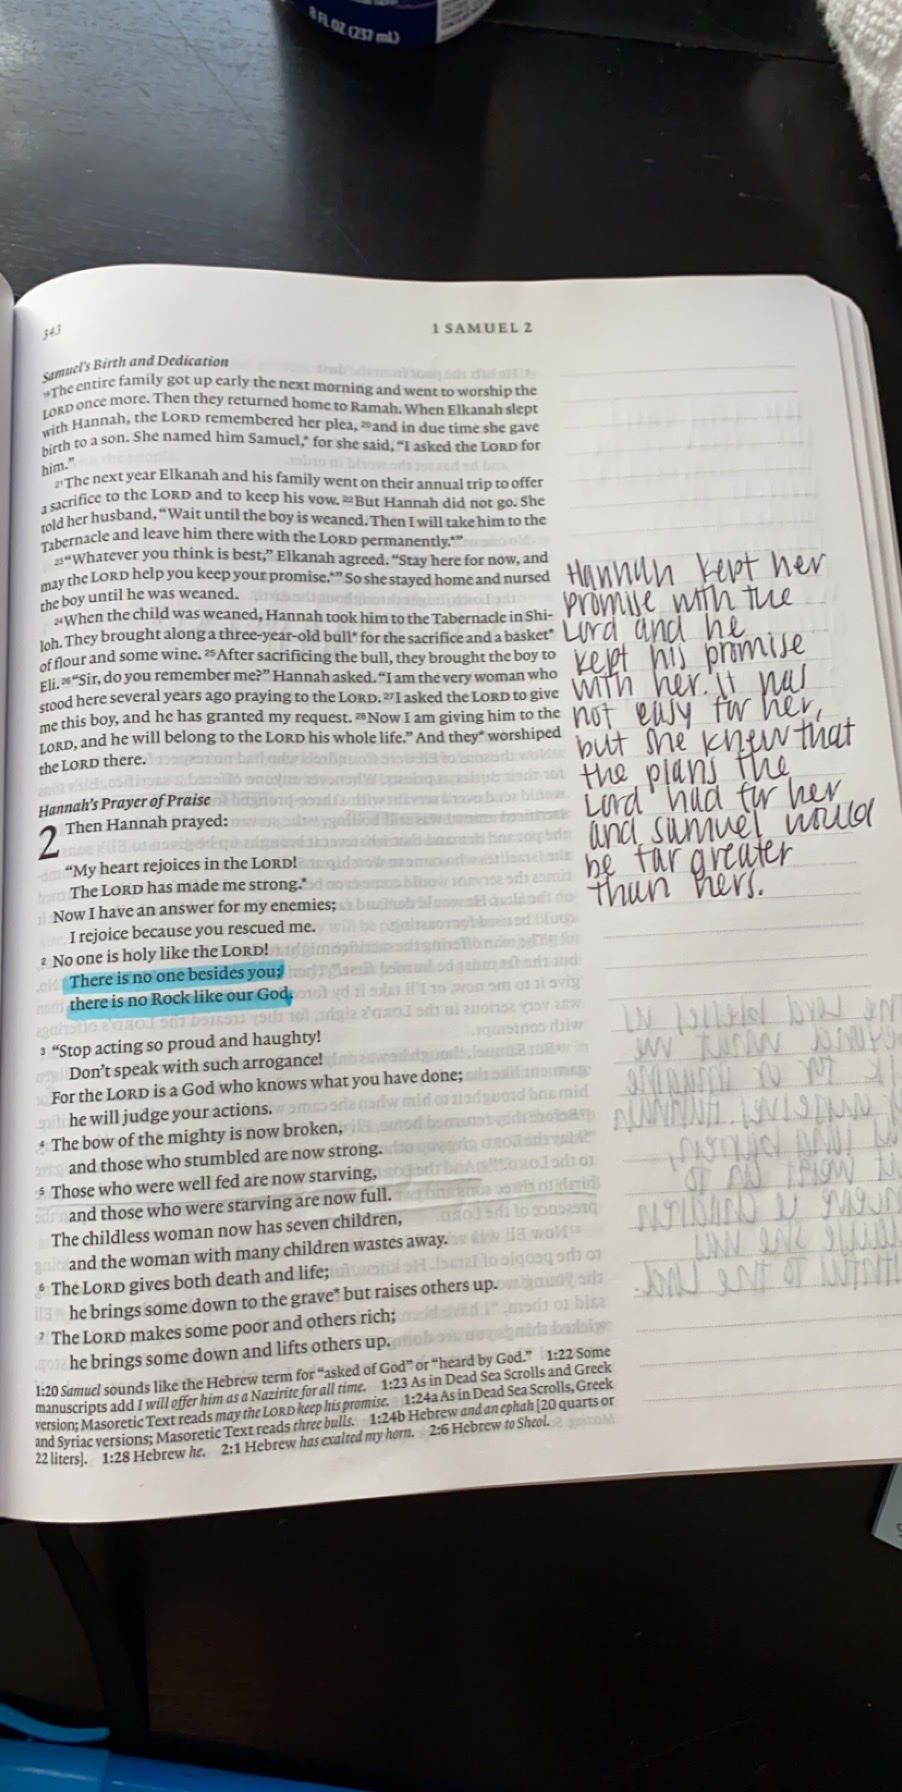 8 FL OZ (237 mL)
343
1 SAMUEL 2
Samuel's Birth and Dedication
¹⁹The entire family got up early the next morning and went to worship the
LORD once more. Then they returned home to Ramah. When Elkanah slept
with Hannah, the LORD remembered her plea, ²⁰and in due time she gave
birth to a son. She named him Samuel,* for she said, “I asked the LORD for
him.”
²¹The next year Elkanah and his family went on their annual trip to offer
a sacrifice to the LORD and to keep his vow. ²²But Hannah did not go. She
told her husband, “Wait until the boy is weaned. Then I will take him to the
Tabernacle and leave him there with the LORD permanently.*”
²³“Whatever you think is best,” Elkanah agreed. “Stay here for now, and
may the LORD help you keep your promise.*” So she stayed home and nursed
the boy until he was weaned.
²⁴When the child was weaned, Hannah took him to the Tabernacle in Shi-
loh. They brought along a three-year-old bull* for the sacrifice and a basket*
of flour and some wine. ²⁵After sacrificing the bull, they brought the boy to
Eli. ²⁶“Sir, do you remember me?” Hannah asked. “I am the very woman who
stood here several years ago praying to the LORD. ²⁷I asked the LORD to give
me this boy, and he has granted my request. ²⁸Now I am giving him to the
LORD, and he will belong to the LORD his whole life.” And they* worshiped
the LORD there.
Hannah's Prayer of Praise
2 Then Hannah prayed:
“My heart rejoices in the LORD!
The LORD has made me strong.*
Now I have an answer for my enemies;
I rejoice because you rescued me.
² No one is holy like the LORD!
There is no one besides you;
there is no Rock like our God.
³ “Stop acting so proud and haughty!
Don't speak with such arrogance!
For the LORD is a God who knows what you have done;
he will judge your actions.
⁴ The bow of the mighty is now broken,
and those who stumbled are now strong.
⁵ Those who were well fed are now starving,
and those who were starving are now full.
The childless woman now has seven children,
and the woman with many children wastes away.
⁶ The LORD gives both death and life;
he brings some down to the grave* but raises others up.
⁷ The LORD makes some poor and others rich;
he brings some down and lifts others up.
1:20 Samuel sounds like the Hebrew term for “asked of God” or “heard by God.” 1:22 Some
manuscripts add I will offer him as a Nazirite for all time. 1:23 As in Dead Sea Scrolls and Greek
version; Masoretic Text reads may the LORD keep his promise. 1:24a As in Dead Sea Scrolls, Greek
and Syriac versions; Masoretic Text reads three bulls. 1:24b Hebrew and an ephah [20 quarts or
22 liters]. 1:28 Hebrew he. 2:1 Hebrew has exalted my horn. 2:6 Hebrew to Sheol.
Hannah kept her
promise with the
Lord and he
kept his promise
with her. It was
not easy for her,
but she knew that
the plans the
Lord had for her
and samuel would
be far greater
than hers.